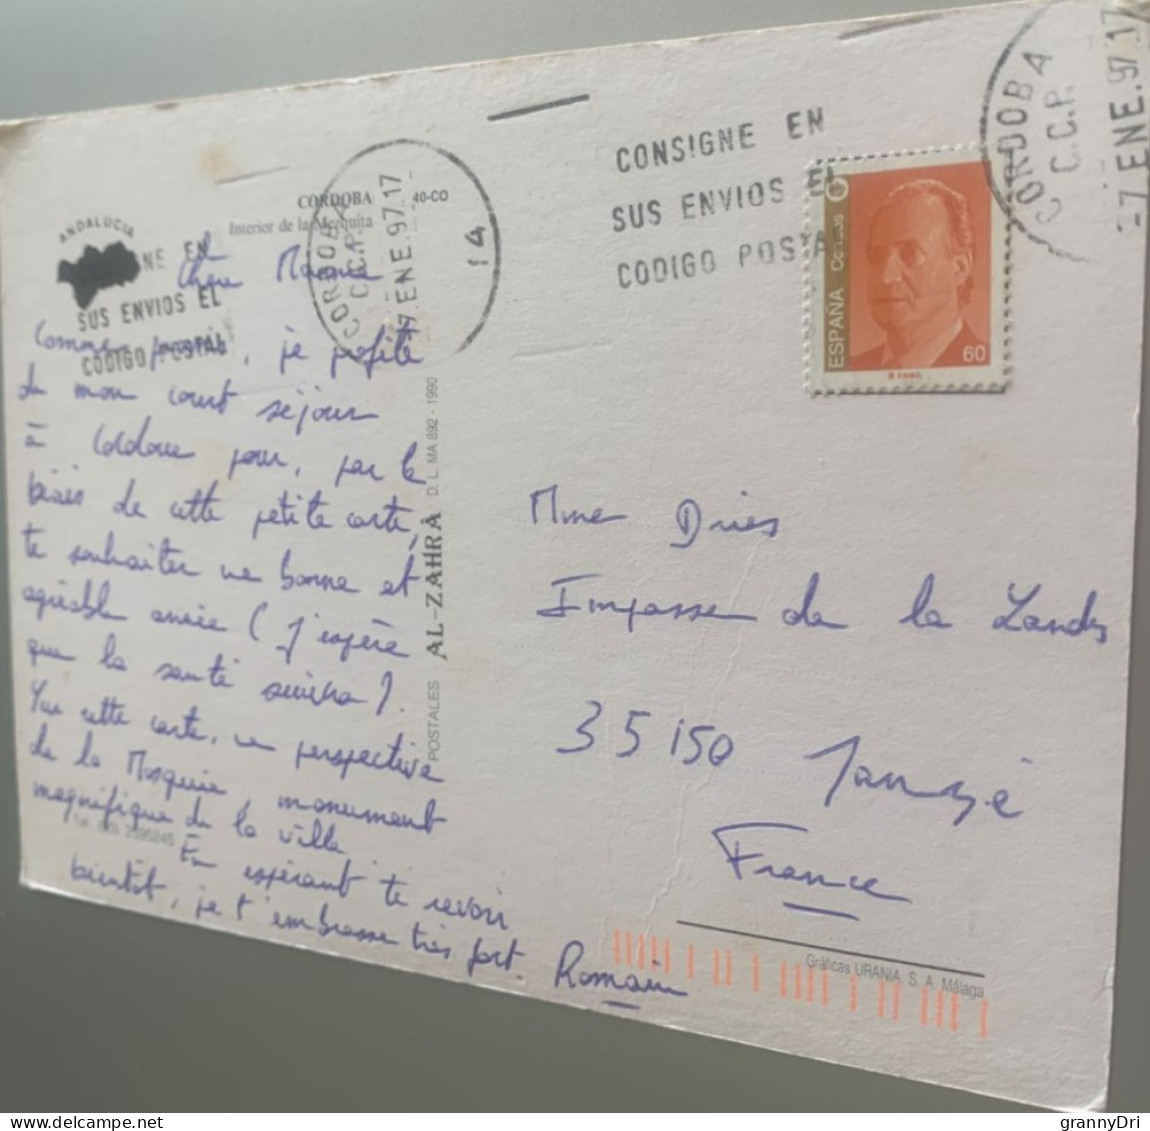 CORDOBA 40-CO
Interior de la Mezquita
ANDALUCIA
CONSIGNE EN
SUS ENVIOS EL
CODIGO POSTAL
CORDOBA
C.C.P.
-7 ENE. 97 17
14
NE EN
SUS ENVIOS EL
CODIGO POSTAL
CORDOBA
C.C.P.
7 ENE 97 17
Correos
ESPAÑA
60
Comme promis, je profite
de mon court séjour
à Cordoue pour, par le
biais de cette petite carte,
te souhaiter une bonne et
agréable année (j'espère
que la santé suivra).
Sur cette carte, une perspective
de la Mosquée, monument
magnifique de la ville
En espérant te revoir
bientôt, je t'embrasse très fort.
Romain
POSTALES AL-ZAHRA D. L. MA 892 - 1990
Mme Dries
Impasse de la Landes
35150 Janzé
France
Gráficas URANIA, S. A. Málaga
grannyDri
www.delcampe.net